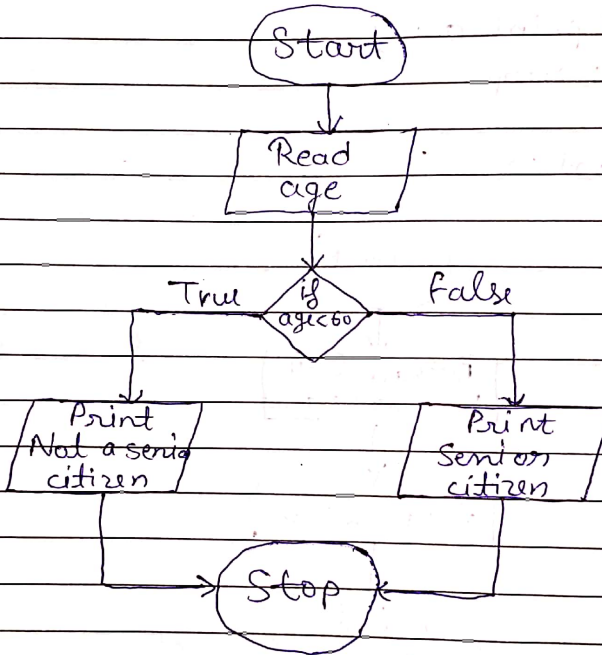 Start
Read
age
True
if
age<60
False
Print
Not a senio
citizen
Print
Senior
citizen
Stop